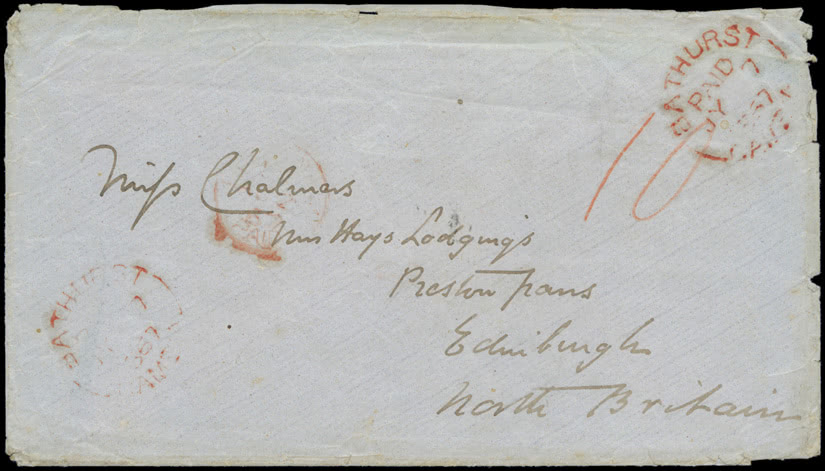 BATHURST
PAID
7
JY
10
Miss Chalmers
Mrs Hays Lodgings
Preston pans
Edinburgh
North Britain
BATHURST
7